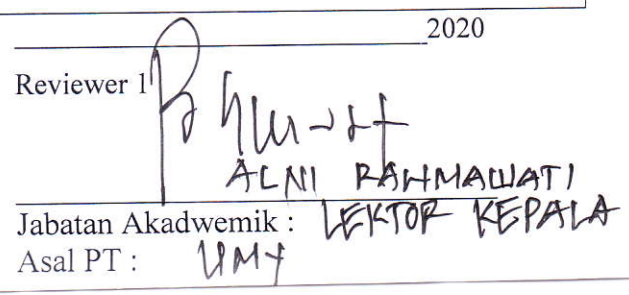 2020
Reviewer 1
ALNI RAHMAWATI
Jabatan Akadwemik : LEKTOR KEPALA
Asal PT : UMY